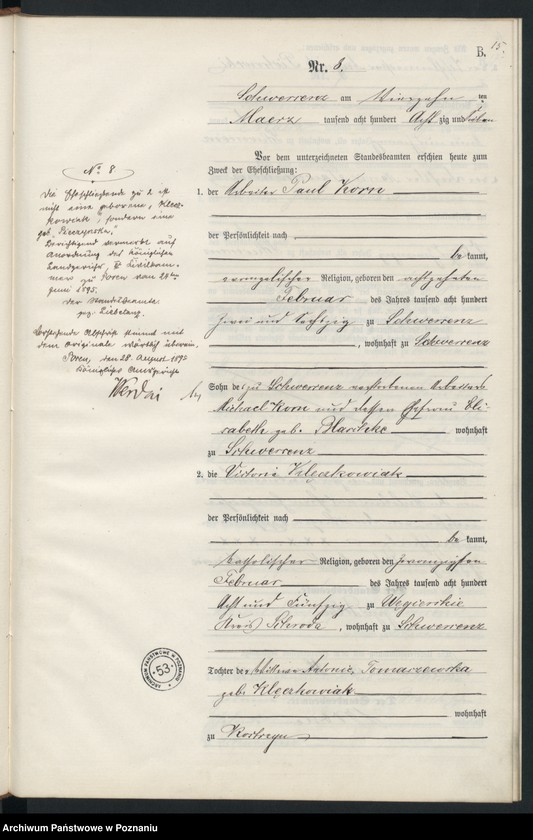 B.
15.
Nr. 8.
Schwersenz am Vierzehn ten
Maerz tausend acht hundert Acht zig und
Vor dem unterzeichneten Standesbeamten erschien heute zum
Zweck der Eheschließung:
1. der Arbeiter Paul Korn
der Persönlichkeit nach
be kannt,
evangelischer Religion, geboren den achtzehnten
Februar des Jahres tausend acht hundert
zwei und sechszig zu Schwersenz
, wohnhaft zu Schwersenz
Sohn des zu Schwersenz verstorbenen Arbeiters
Michael Korn und dessen Ehefrau Eli-
sabeth geb. wohnhaft
zu Schwersenz
2. die Victoria Kleczkowiak
der Persönlichkeit nach
be kannt,
katholischer Religion, geboren den zwanzigsten
Februar des Jahres tausend acht hundert
Acht und Fünfzig zu Wegierskie
Kreis Schroda, wohnhaft zu Schwersenz
Tochter der Wittwe Antonie Tomaszewska
geb. Kleczkowiak
wohnhaft
zu Kostrzyn
No 8
Die Eheschließende zu 2 ist
nicht eine geborene "Klecz-
kowiak", sondern eine
geb.
Berichtigend vermerkt auf
Anordnung des Königlichen
Landgerichts, II Civilkam-
mer zu Posen vom 24ten
Juni 1895.
Der Standesbeamte
gez. Liebelang.
Vorstehende Abschrift stimmt mit
dem Originale wörtlich überein.
Posen, den 28. August 1895
Königliches Amtsgericht
ARCHIWUM PAŃSTWOWE W POZNANIU
53
Archiwum Państwowe w Poznaniu